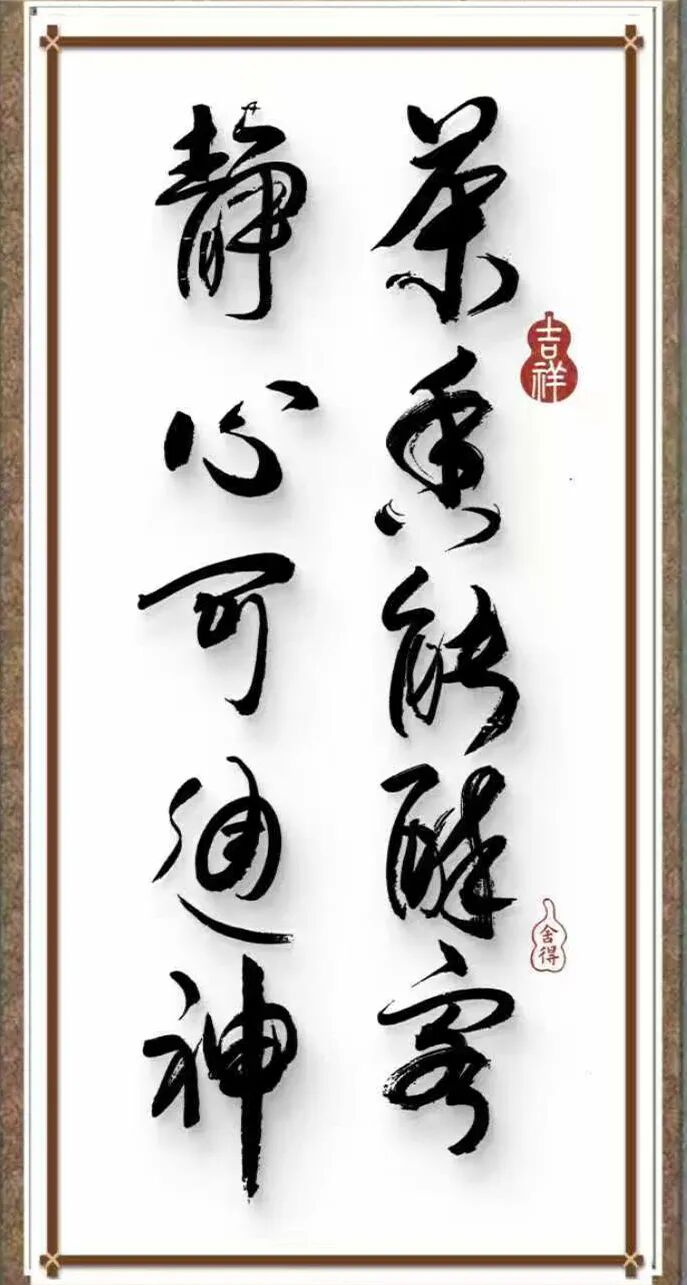 茶香能醉客
静心可通神
吉祥
舍得